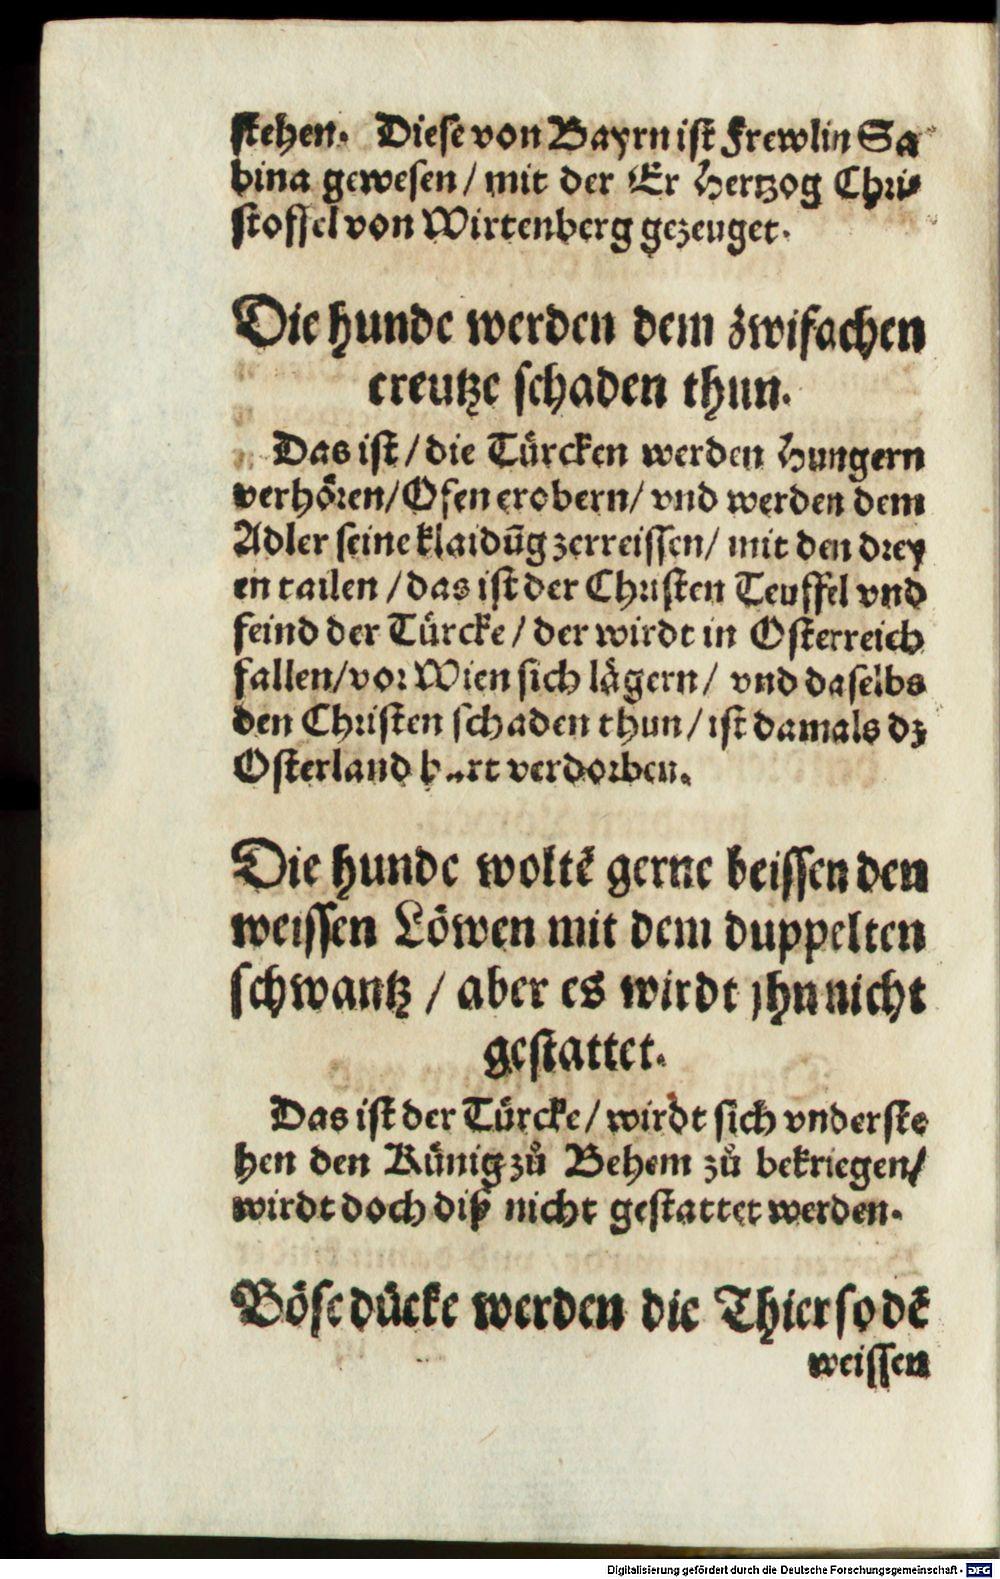 stehen. Diese von Bayrn ist Frewlin Sa
bina gewesen / mit der Er Hertzog Chri-
stoffel von Wirtenberg gezeuget.
Die hunde werden dem zwifachen
creutze schaden thun.
Das ist / die Türcken werden Hungern
verhören / Ofen erobern / vnd werden dem
Adler seine klaidūg zerreissen / mit den drey
en tailen / das ist der Christen Teuffel vnd
feind der Türcke / der wirdt in Osterreich
fallen / vor Wien sich lägern / vnd daselbs
den Christen schaden thun / ist damals dz
Osterland verdorben.
Die hunde woltē gerne beissen den
weissen Löwen mit dem duppelten
schwantz / aber es wirdt jhn nicht
gestattet.
Das ist der Türcke / wirdt sich vnderste
hen den Künig zů Behem zů bekriegen /
wirdt doch diß nicht gestattet werden.
Böse dücke werden die Thier so dē
weissen
Digitalisierung gefördert durch die Deutsche Forschungsgemeinschaft - DFG